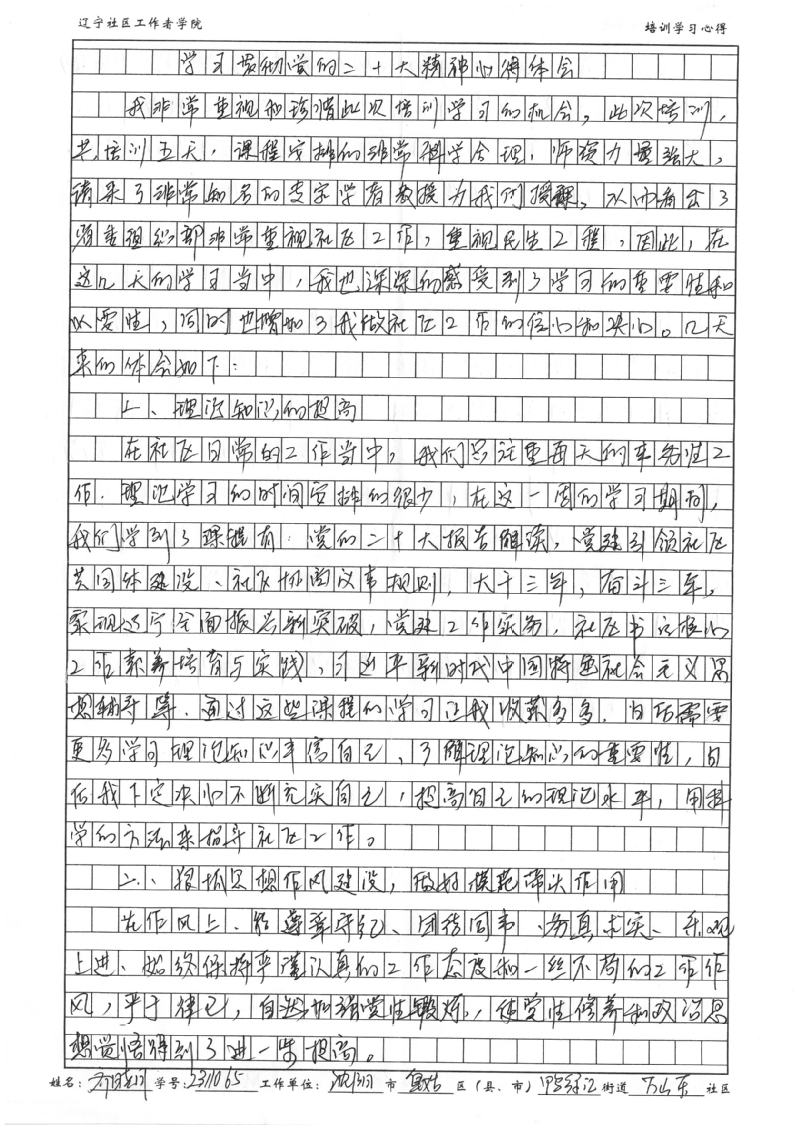 辽宁社区工作者学院 培训学习心得
学习贯彻党的二十大精神心得体会
我非常重视和珍惜此次培训学习的机会。此次培训，
共培训五天，课程安排的非常科学合理，师资力量强大，
请来了非常知名的专家学者教授为我们授课。从而看出了
省委组织部非常重视社区工作，重视民生工程，因此，在
这几天的学习当中，我也深深的感受到了学习的重要性和
必要性，同时也增加了我做社区工作的信心和决心。几天
来的体会如下：
一、理论知识的提高
在社区日常的工作当中，我们只注重每天的事务性工
作．理论学习的时间安排的很少，在这一周的学习期间，
我们学到了课程有：党的二十大报告解读，党建引领社区
共同体建设、社区协商议事规则，大干三年，奋斗三年，
实现辽宁全面振兴新突破，党建工作实务，社区书记核心
工作素养培育与实践，习近平新时代中国特色社会主义思
想辅导等．通过这些课程的学习让我收获多多．日后需要
更多学习理论知识丰富自己、了解理论知识的重要性，日
后我下定决心不断充实自己，提高自己的理论水平，用科
学的方法来指导社区工作。
二、狠抓思想作风建设，做好模范带头作用
在作风上、能遵章守纪、团结同事、务真求实、乐观
上进、始终保持严谨认真的工作态度和一丝不苟的工作作
风，严于律己，自然加强党性锻炼，使党性修养和政治思
想觉悟得到了进一步提高。
姓名： 学号：2311065 工作单位：沈阳 市 皇姑 区（县、市） 鸭绿江 街道 方山东 社区